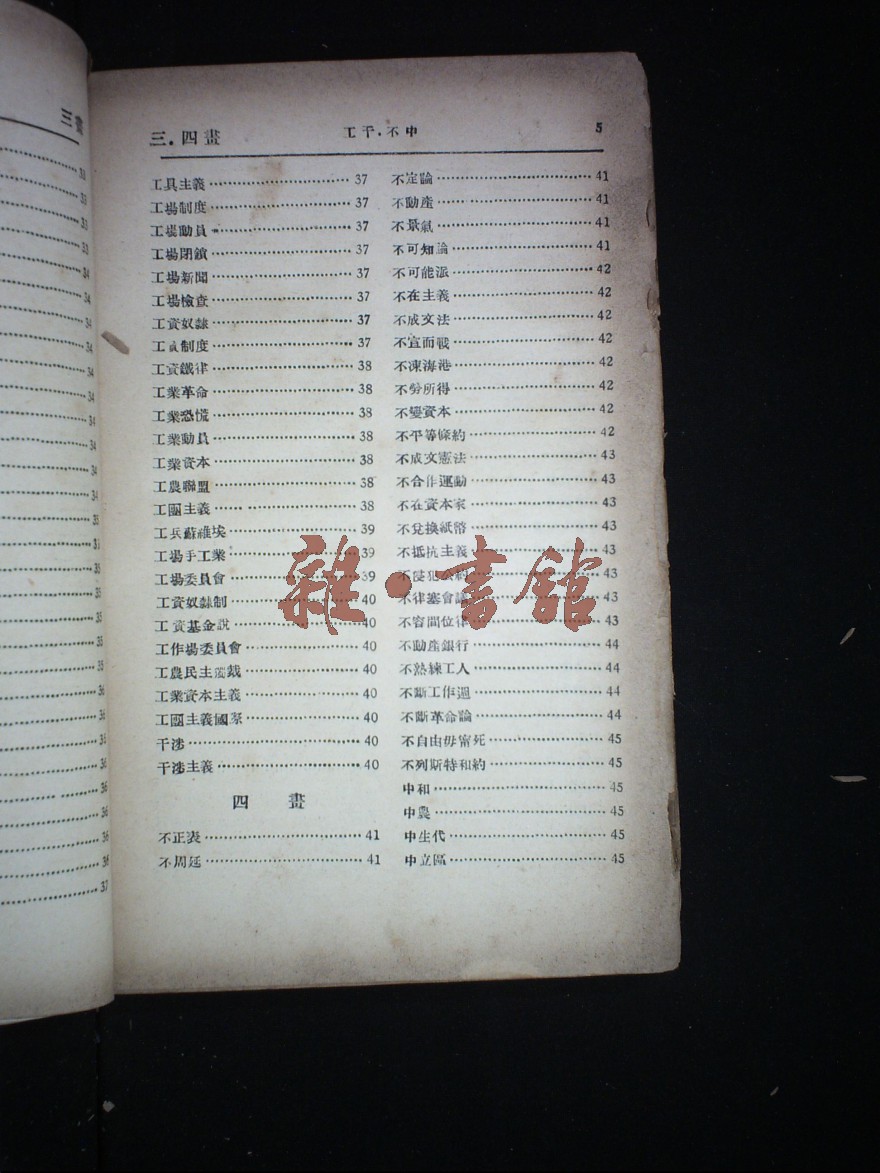 三畫
31
33
33
33
34
34
34
34
34
34
34
34
34
34
35
35
35
35
35
35
36
36
36
36
36
36
36
37
三．四畫 工干．不中 5
工具主義 37
工場制度 37
工場動員 37
工場閉鎖 37
工場新聞 37
工場檢查 37
工資奴隸 37
工資制度 37
工資鐵律 38
工業革命 38
工業恐慌 38
工業動員 38
工業資本 38
工農聯盟 38
工團主義 38
工兵蘇維埃 39
工場手工業 39
工場委員會 39
工資奴隸制 40
工資基金說 40
工作場委員會 40
工農民主專政 40
工業資本主義 40
工團主義國家 40
干涉 40
干涉主義 40
四 畫
不正表 41
不周延 41
不定論 41
不動產 41
不景氣 41
不可知論 41
不可能派 42
不在主義 42
不成文法 42
不宣而戰 42
不凍海港 42
不勞所得 42
不變資本 42
不平等條約 42
不成文憲法 43
不合作運動 43
不在資本家 43
不兌換紙幣 43
不抵抗主義 43
不侵犯公約 43
不律塞會議 43
不容間位律 43
不動產銀行 44
不熟練工人 44
不斷工作週 44
不斷革命論 44
不自由毋甯死 45
不列斯特和約 45
中和 45
中農 45
中生代 45
中立區 45
雜·書館